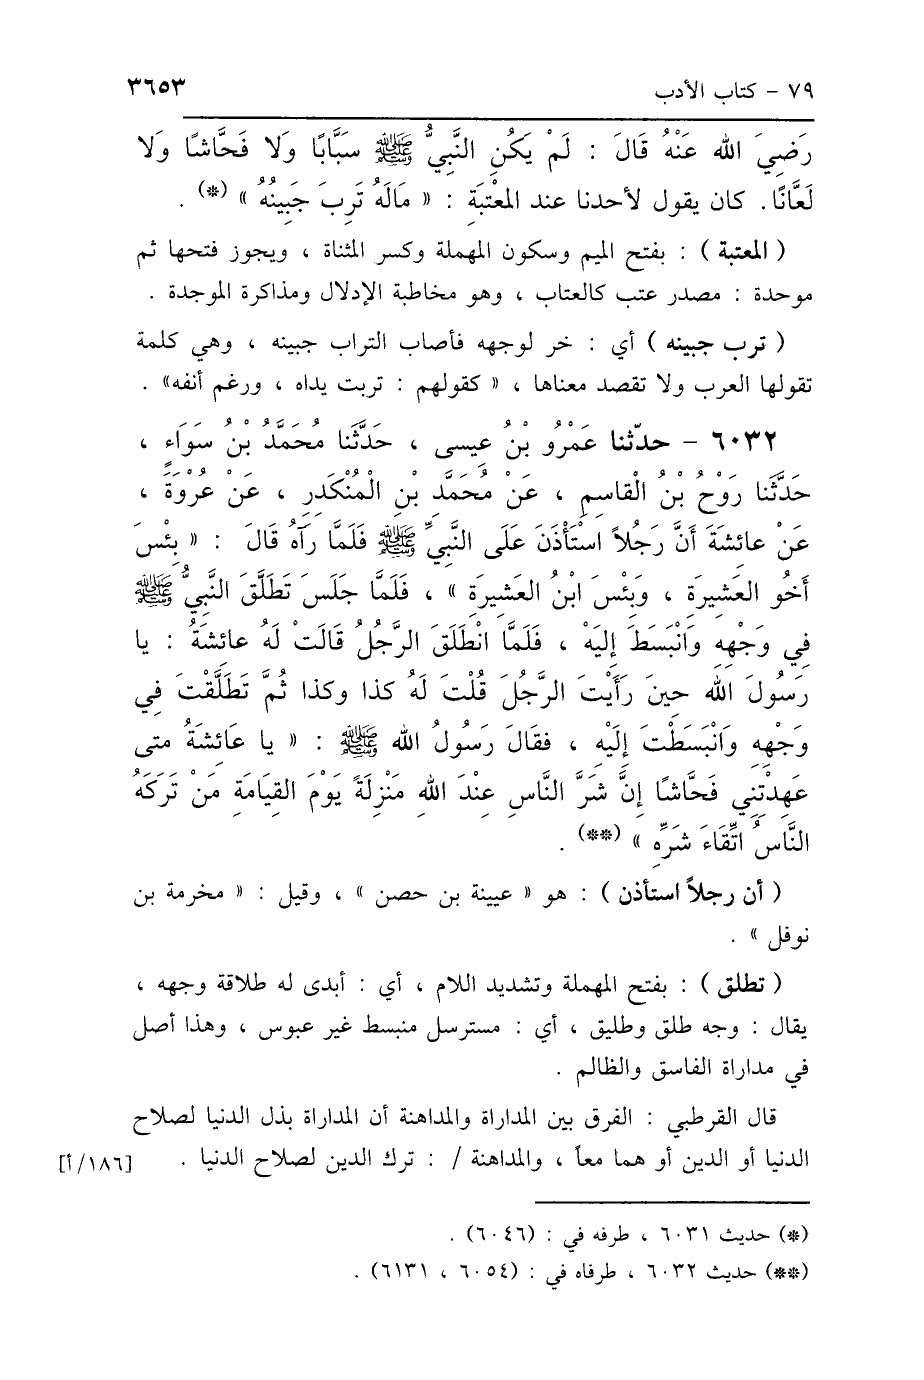 ٧٩ - كتاب الأدب ٣٦٥٣
رَضِيَ الله عَنْهُ قَالَ : لَمْ يَكُنِ النَّبِيُّ ﷺ سَبَّابًا وَلا فَحَّاشًا وَلا
لَعَّانًا. كان يقول لأحدنا عند المعْتِبَةِ : « مَالَهُ تَرِبَ جَبِينُهُ » (*) .
( المعتبة ) : بفتح الميم وسكون المهملة وكسر المثناة ، ويجوز فتحها ثم
موحدة : مصدر عتب كالعتاب ، وهو مخاطبة الإدلال ومذاكرة الموجدة .
( ترب جبينه ) أي : خر لوجهه فأصاب التراب جبينه ، وهي كلمة
تقولها العرب ولا تقصد معناها ، « كقولهم : تربت يداه ، ورغم أنفه» .
٦٠٣٢ - حدّثنا عَمْرُو بْنُ عِيسى ، حَدَّثَنا مُحَمَّدُ بْنُ سَوَاءٍ ،
حَدَّثَنا رَوْحُ بْنُ القَاسِمِ ، عَنْ مُحَمَّدِ بْنِ الْمُنْكَدِرِ ، عَنْ عُرْوَةَ ،
عَنْ عائِشَةَ أَنَّ رَجُلاً اسْتَأْذَنَ عَلَى النَّبِيِّ ﷺ فَلَمَّا رَآهُ قَالَ : « بِئْسَ
أَخُو العَشِيرَةِ ، وَبِئْسَ ابْنُ العَشِيرَةِ » ، فَلَمَّا جَلَسَ تَطَلَّقَ النَّبِيُّ ﷺ
فِي وَجْهِهِ وَانْبَسَطَ إِلَيْهِ ، فَلَمَّا انْطَلَقَ الرَّجُلُ قَالَتْ لَهُ عائِشَةُ : يا
رَسُولَ الله حِينَ رَأَيْتَ الرَّجُلَ قُلْتَ لَهُ كذا وكذا ثُمَّ تَطَلَّقْتَ فِي
وَجْهِهِ وَانْبَسَطْتَ إِلَيْهِ ، فقَالَ رَسُولُ الله ﷺ : « يا عَائِشَةُ متى
عَهِدْتِنِي فَحَّاشًا إِنَّ شَرَّ النَّاسِ عِنْدَ اللهِ مَنْزِلَةً يَوْمَ القِيَامَةِ مَنْ تَرَكَهُ
النَّاسُ اتِّقَاءَ شَرِّهِ » (**) .
( أن رجلاً استأذن ) : هو « عيينة بن حصن » ، وقيل : « مخرمة بن
نوفل » .
( تطلق ) : بفتح المهملة وتشديد اللام ، أي : أبدى له طلاقة وجهه ،
يقال : وجه طلق وطليق ، أي : مسترسل منبسط غير عبوس ، وهذا أصل
في مداراة الفاسق والظالم .
قال القرطبي : الفرق بين المداراة والمداهنة أن المداراة بذل الدنيا لصلاح
الدنيا أو الدين أو هما معاً ، والمداهنة / : ترك الدين لصلاح الدنيا . [١٨٦/أ]
(*) حديث ٦٠٣١ ، طرفه في : (٦٠٤٦) .
(**) حديث ٦٠٣٢ ، طرفاه في : (٦٠٥٤ ، ٦١٣١) .